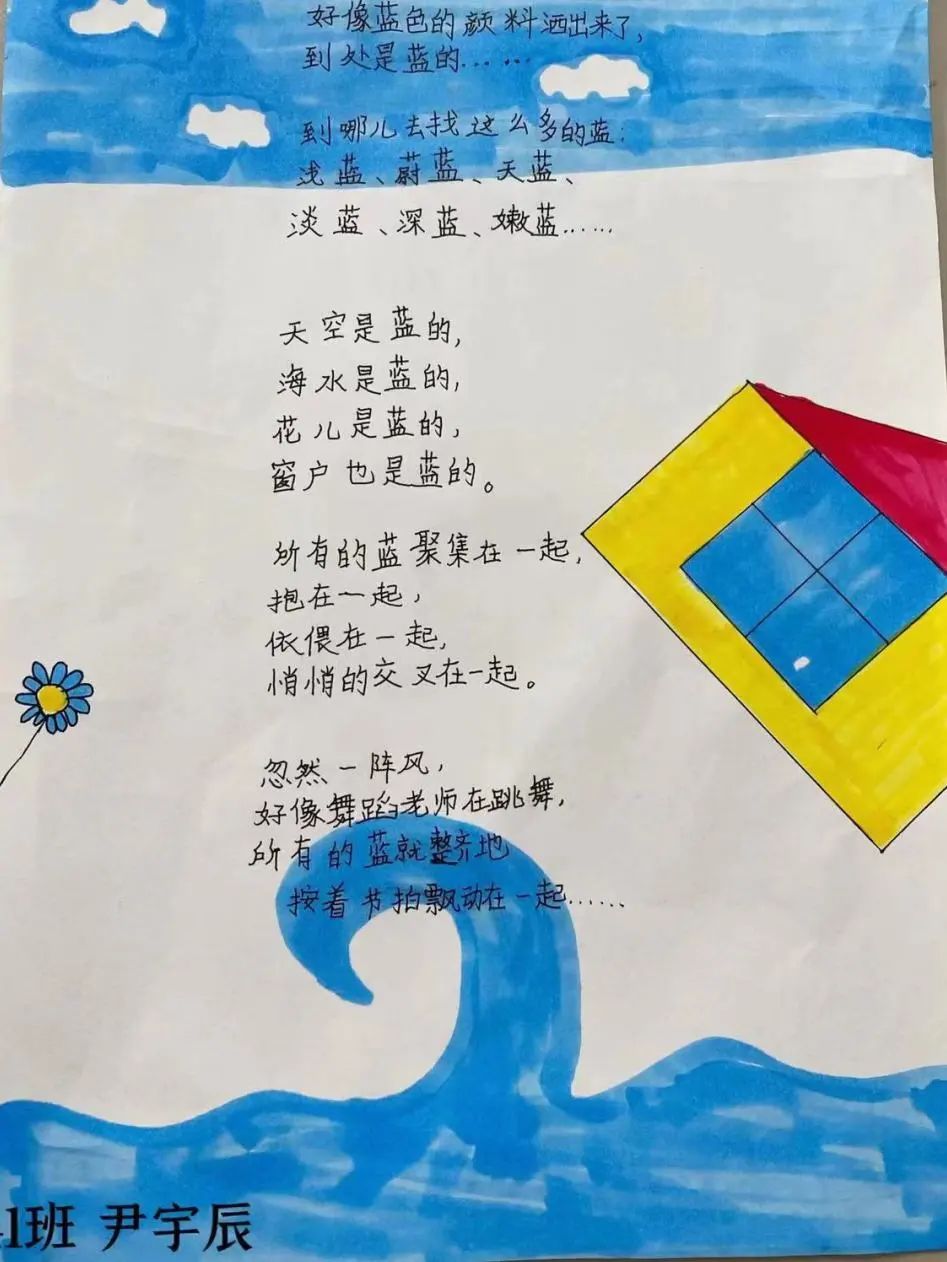 好像蓝色的颜料洒出来了,
到处是蓝的……
到哪儿去找这么多的蓝:
浅蓝、蔚蓝、天蓝、
淡蓝、深蓝、嫩蓝……
天空是蓝的,
海水是蓝的,
花儿是蓝的,
窗户也是蓝的。
所有的蓝聚集在一起,
抱在一起,
依偎在一起,
悄悄的交叉在一起。
忽然一阵风,
好像舞蹈老师在跳舞,
所有的蓝就整齐地
按着节拍飘动在一起……
1班 尹宇辰